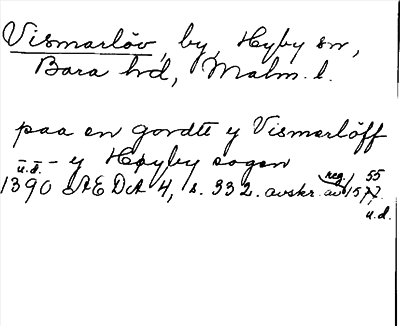 Vismarlöv, by, Hyby sn,
Bara hd, Malm. l.
paa en gordtt y Vismerlöff
u.d. - y Høyby sogen
1390 ÆDA 4, s. 332. avskr. av reg. 1555
u.d.